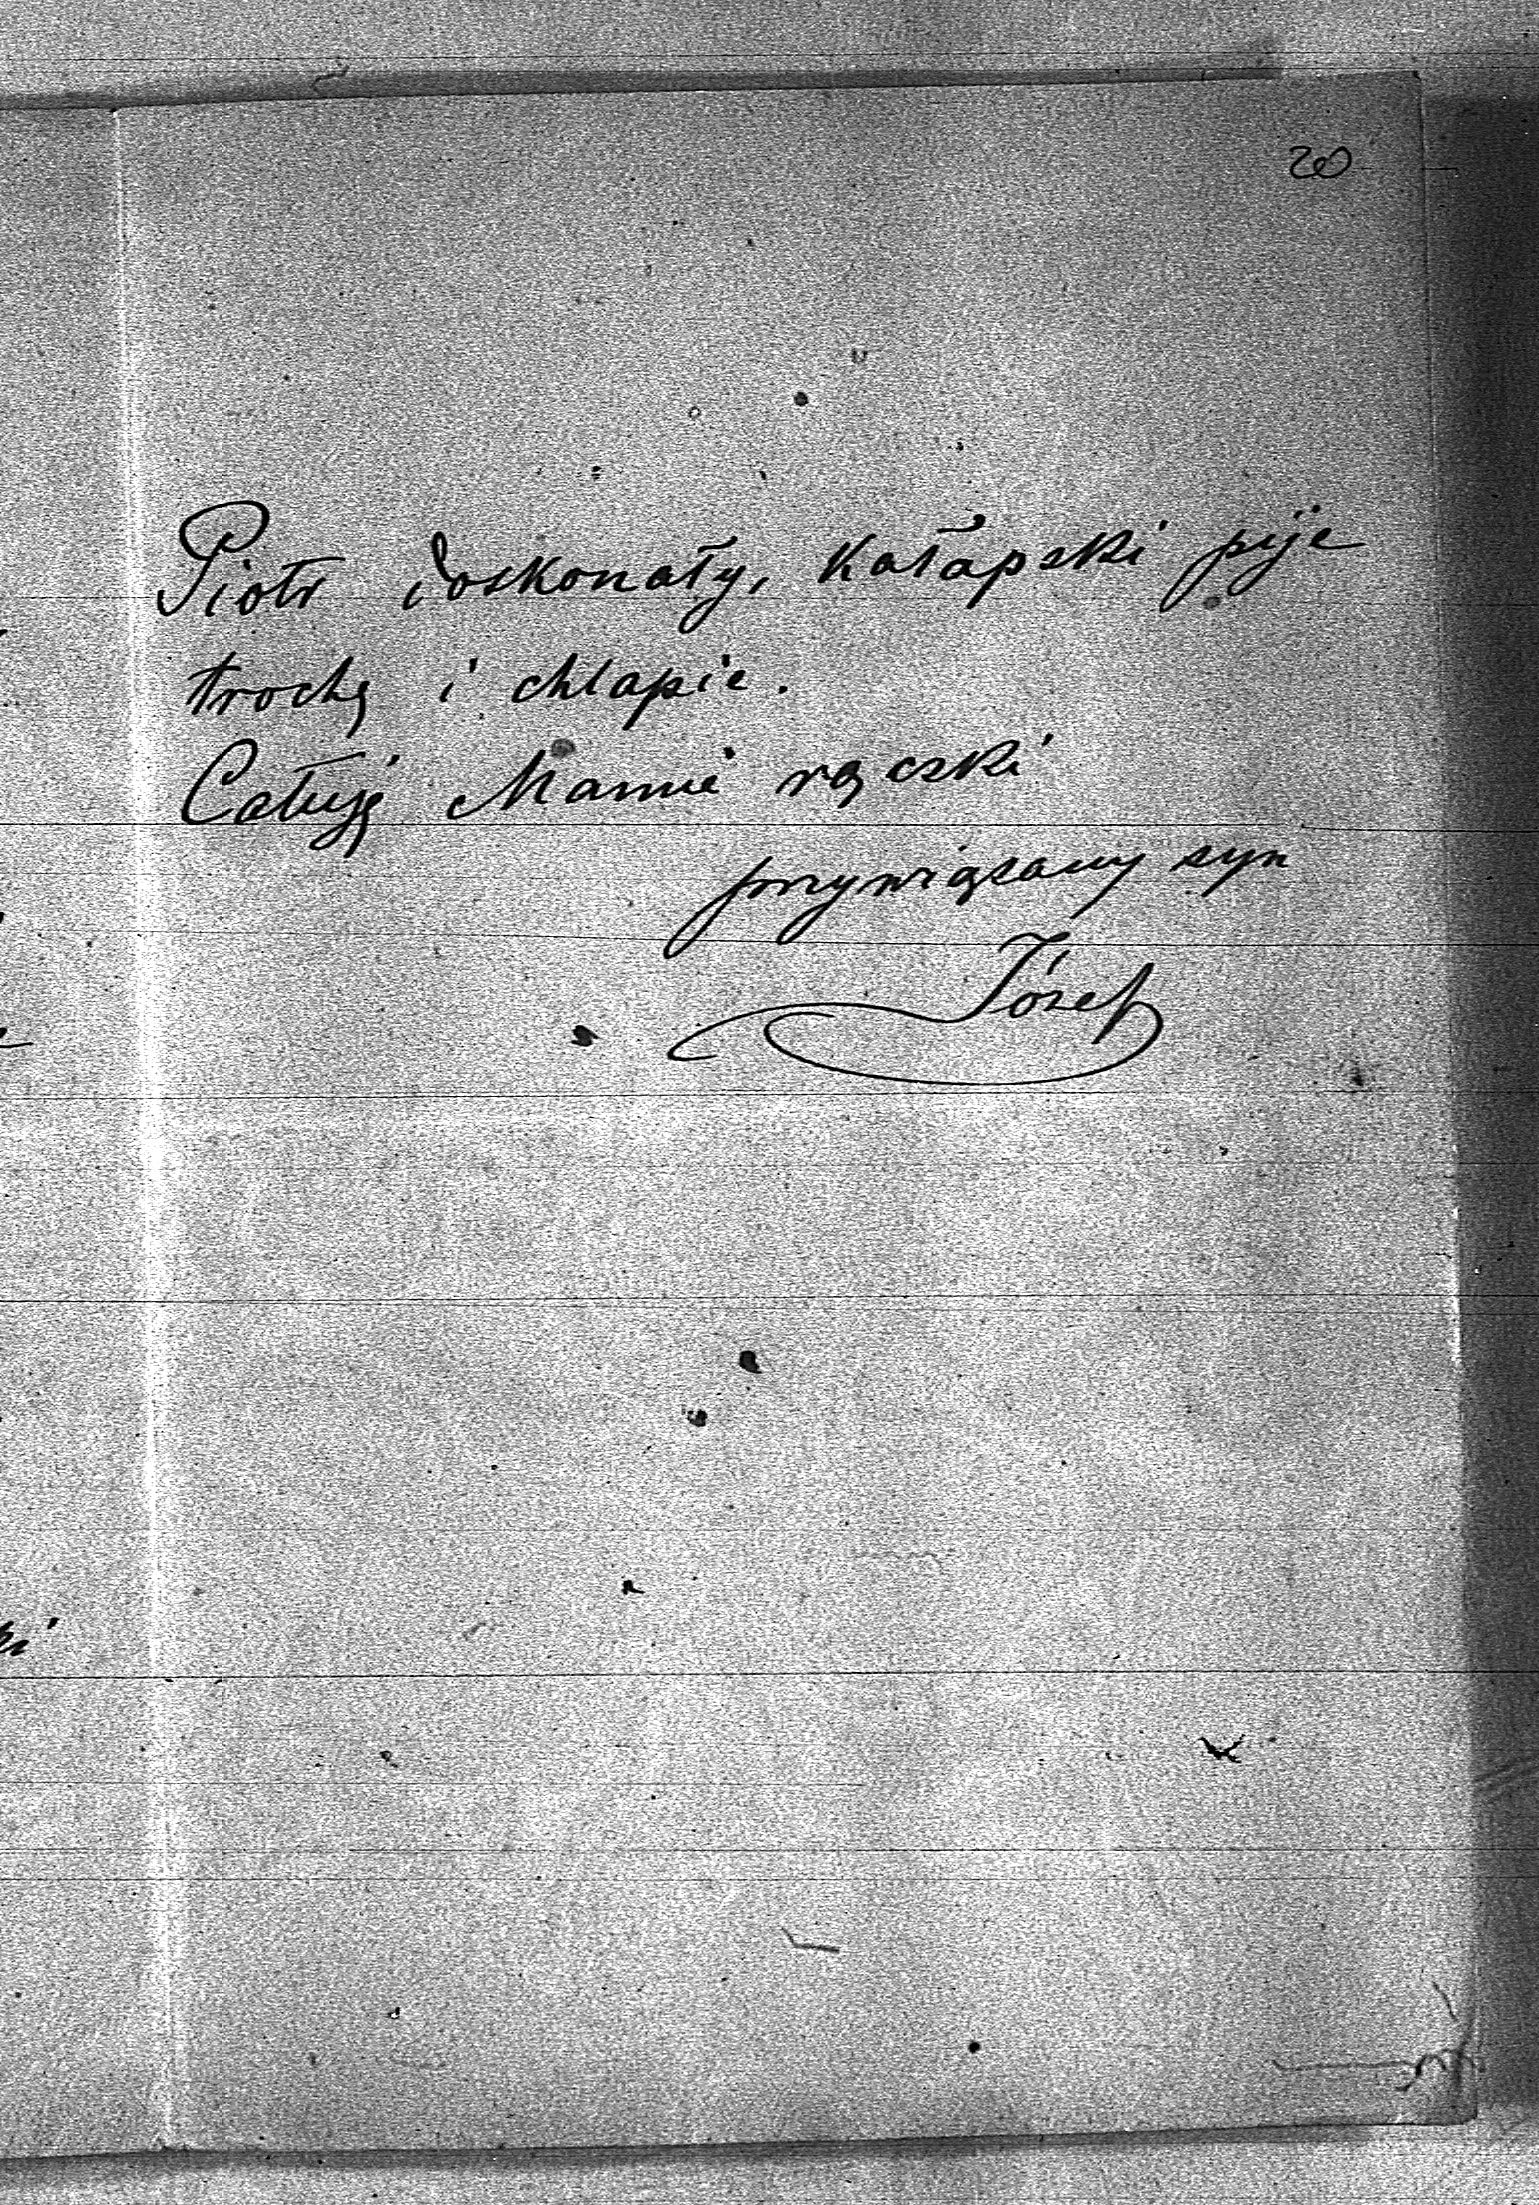 20
Piotr doskonały, Kałapski pije
trochę i chlapie.
Całuję Mamie rączki
przywiązany syn
Józef